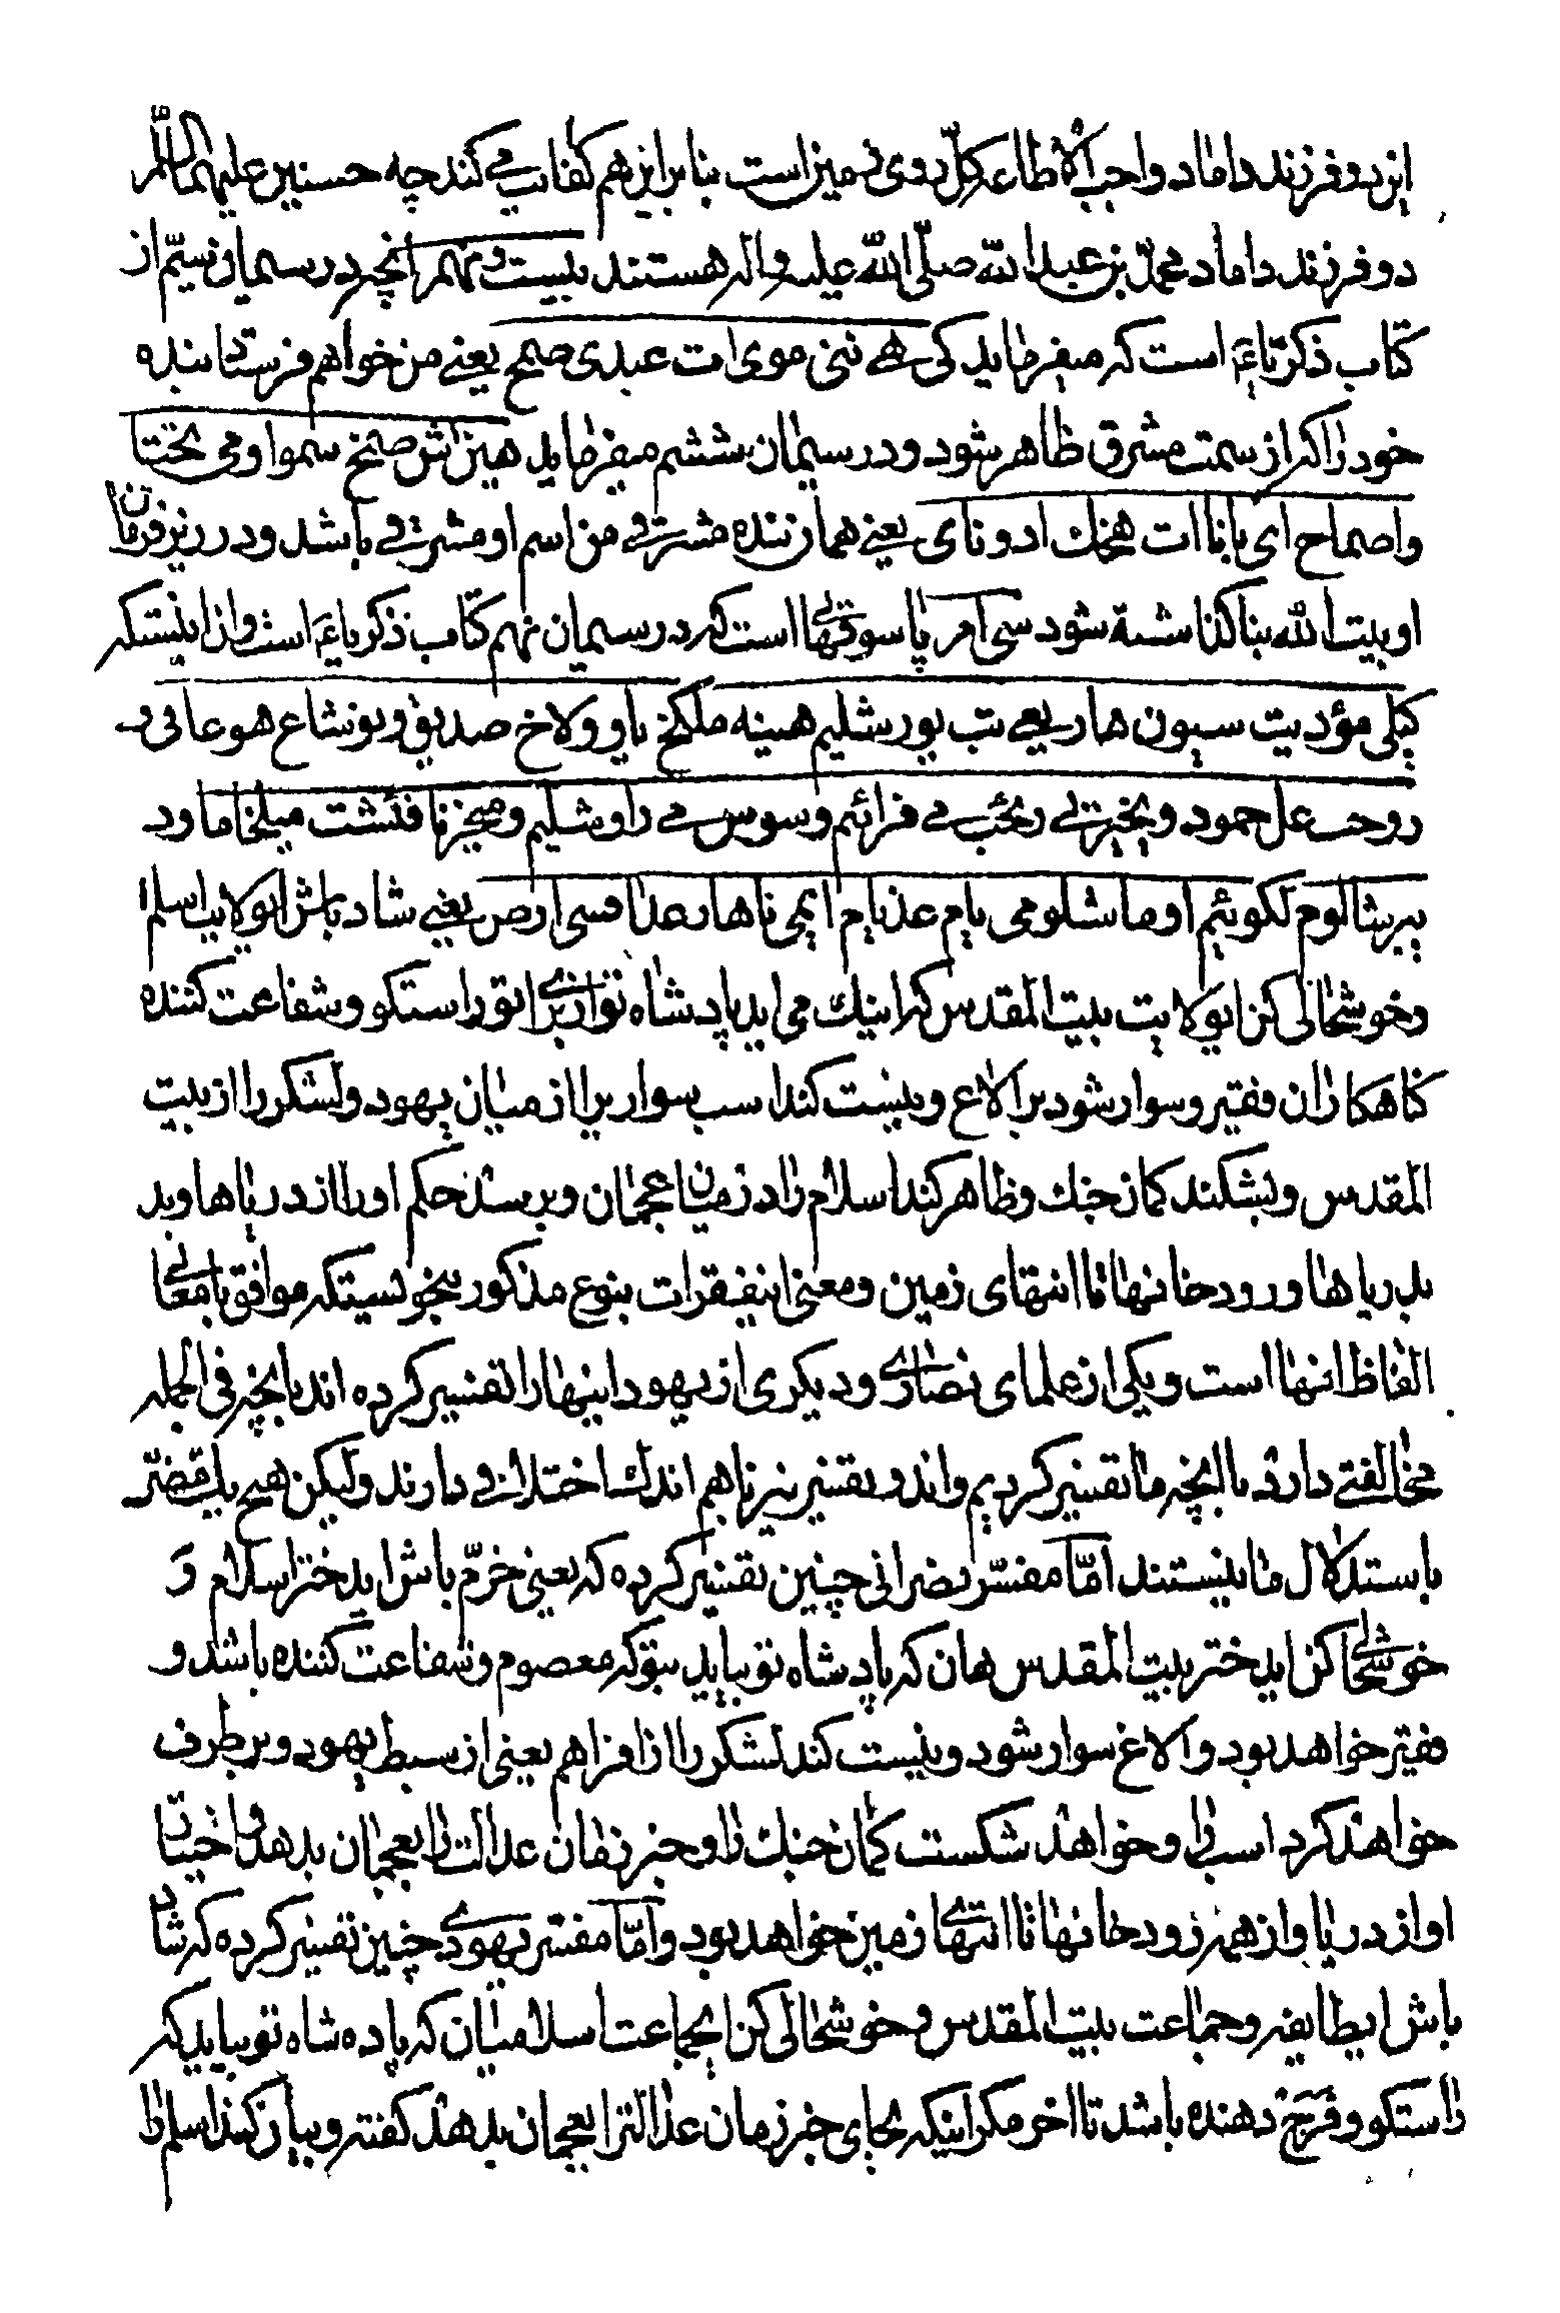 این دو فرزند داماد واجب الاطاعه کل روی زمین است بنابراین هم کفایت می کند چه حسنین علیهما السلام
دو فرزند داماد محمد بن عبد الله صلّی الله علیه واله هستند بیست و نهم انچه در سیمان سیّم از
کتاب ذکریاء است که میفرماید کی هی ننی موی ات عبدی صمح یعنی من خواهم فرستاد بنده
خود را که از سمت مشرق ظاهر شود و در سیمان ششم میفرماید هینه ایش صمخ سموا ومی تختا
واصماح ای بانا ات هخک ادونای یعنی همان بنده مشرقی من اسم او مشرقی باشد و در زیر فرمان
او بیت الله بنا گذاشته شود سی ام پاسوقهائی است که در سیمان نهم کتاب ذکریاء است وان اینستکه
کیلی مؤد بیت سیون هاریعی بت یورشلیم هینه ملکخ یاوولاخ صدیق ونوشاع هو عانی و
روحب عل حمود و یخرتی رخب می فرائیم وسوس می راوشلیم ومیخرنا قئشت میلخاما ود
بیرشالوم لکوئیم اوماشلومی یام عد یام ایمی ناهار عدافسی ارص یعنی شاد باش ایولایت اسلام
وخوشحالی کن ایولایت بیت المقدس که اینک می اید پادشاه تو از برای تو راستکو وشفاعت کننده
کناهکاران فقیر وسوار شود بر الاغ ونیست کند اسب سواریرا از میان یهود ولشکر را از بیت
المقدس وبشکند کمان جنک وظاهر کند اسلام را در میان عجمان وبرسد حکم او از دریاها وبد
بدریاها ورودخانها تا انتهای زمین ومعنی اینفقرات بنوع مذکور بنحویستکه موافق بامعانی
الفاظ انها است ویکی از علمای نصاری ودیکری از یهود اینها را تفسیر کرده اند بانچه فی الجمله
مخالفتی دارد با انچه ما تفسیر کردیم واندو تفسیر نیز باهم اندک اختلافی دارند ولیکن هیچ یک مضرّ
باستدلال ما نیستند امّا مفسّر نصرانی چنین تفسیر کرده که یعنی خرّم باش ایدختر اسلام و
خوشحالی کن ایدختر بیت المقدس هان که پادشاه تو بیاید بتو که معصوم وشفاعت کننده باشد و
فقیر خواهد بود والاغ سوار شود ونیست کند لشکر را از افراهم یعنی از سبط یهود وبرطرف
خواهد کرد اسب را وخواهد شکست کمان جنک را وخبر زمان عدالت را بعجمان بدهد واختیار
او از دریا واز همه رودخانها تا انتهای زمین خواهد بود وامّا مفسّر یهودی چنین تفسیر کرده که شاد
باش ایطایفه وجماعت بیت المقدس وخوشحالی کن ایجماعت اسلامیان که پادشاه تو بیاید که
راستکو وفرج دهنده باشد تا اخر مکر اینکه بجای خبر زمان عدالترا بعجمان بدهد کفته وبیان کند اسلام را